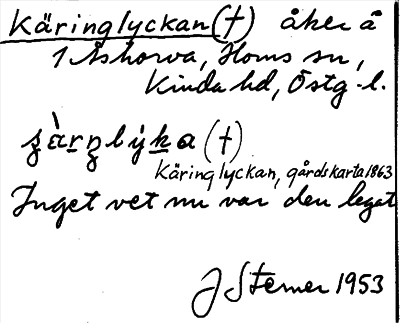 Käringlyckan (†) åker å
1 Åshorva, Horns sn,
Kinda hd, Östg. l.
(†)
Käringlyckan, gårdskarta 1863
Inget vet nu var den legat
J Sterner 1953